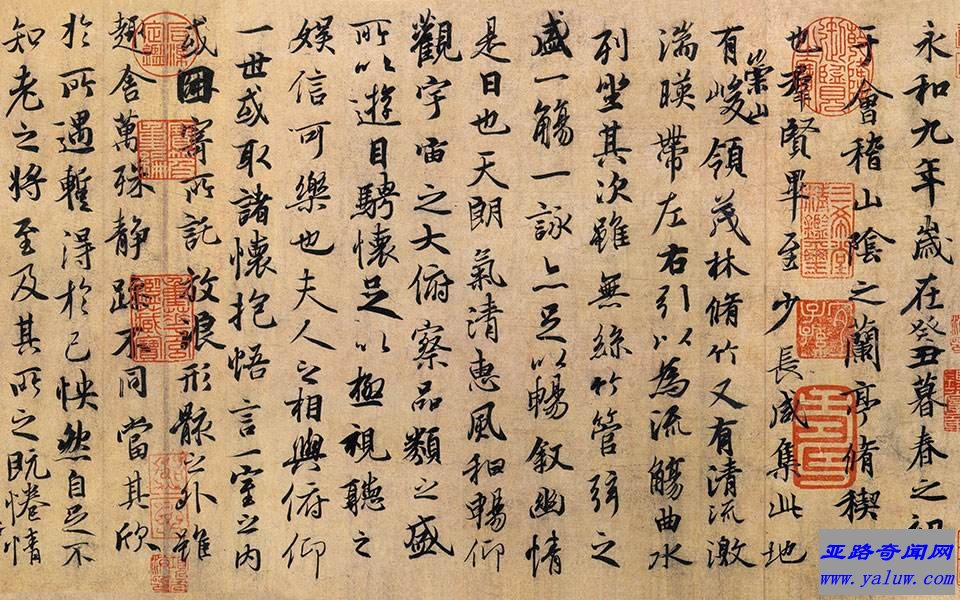 永和九年歲在癸丑暮春之初
于會稽山陰之蘭亭脩稧
也羣賢畢至少長咸集此地
有崇山峻領茂林脩竹又有清流激
湍暎帶左右引以為流觴曲水
列坐其次雖無絲竹管弦之
盛一觴一詠亦足以暢敘幽情
是日也天朗氣清惠風和暢仰
觀宇宙之大俯察品類之盛
所以遊目騁懷足以極視聽之
娛信可樂也夫人之相與俯仰
一世或取諸懷抱悟言一室之內
或因寄所託放浪形骸之外雖
趣舍萬殊静躁不同當其欣
於所遇暫得於己怏然自足不
知老之將至及其所之既惓情
亚路奇闻网
www.yaluw.com